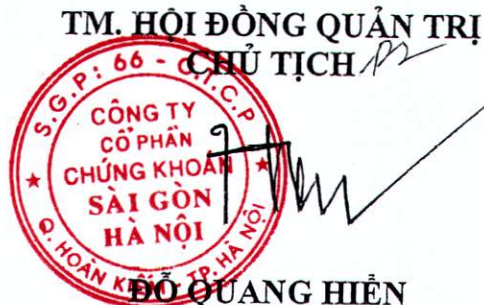 TM. HỘI ĐỒNG QUẢN TRỊ
CHỦ TỊCH
S.G.P: 66 -
C.P
CÔNG TY
CỔ PHẦN
CHỨNG KHOÁN
SÀI GÒN
HÀ NỘI
Q. HOÀN KIẾM - TP. HÀ NỘI
ĐỖ QUANG HIỂN